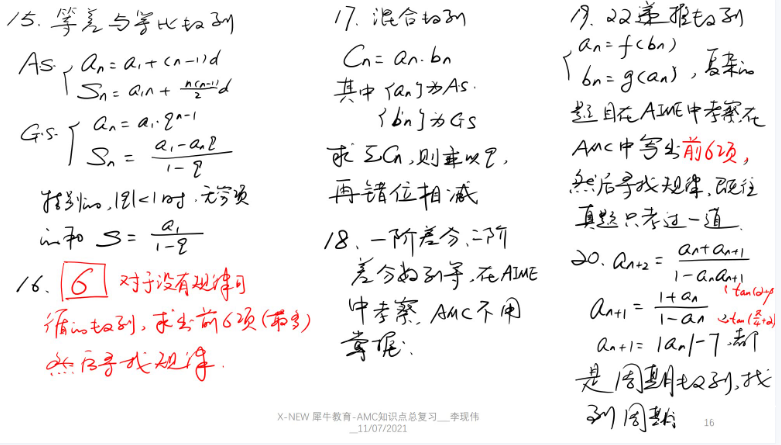 15. 等差与等比数列
AS { an = a1 + (n-1)d
Sn = a1n + n(n-1)/2 d
G.S. { an = a1·q^(n-1)
Sn = (a1-anq)/(1-q)
特别的, |q|<1时, 无穷项
的和 S = a1/(1-q)
16. 6 对于没有规律可
循的数列, 求出前6项(最多)
然后寻找规律.
17. 混合数列
Cn = an·bn
其中{an}为AS.
{bn}为GS
求ΣCn, 则乘以q,
再错位相减
18. 一阶差分、二阶
差分数列等, 在AIME
中考察, AMC不用
掌握.
19. 22递推数列
{ an = f(bn)
bn = g(an) , 复杂的
题目在AIME中考察在
AMC中写出前6项,
然后寻找规律, 既往
真题只考过一道.
20. an+2 = (an+an+1)/(1-anan+1)
an+1 = (1+an)/(1-an)
an+1 = |an|-7, 都
是周期数列, 找
到周期
X-NEW 犀牛教育-AMC知识点总复习__李现伟
__11/07/2021
16